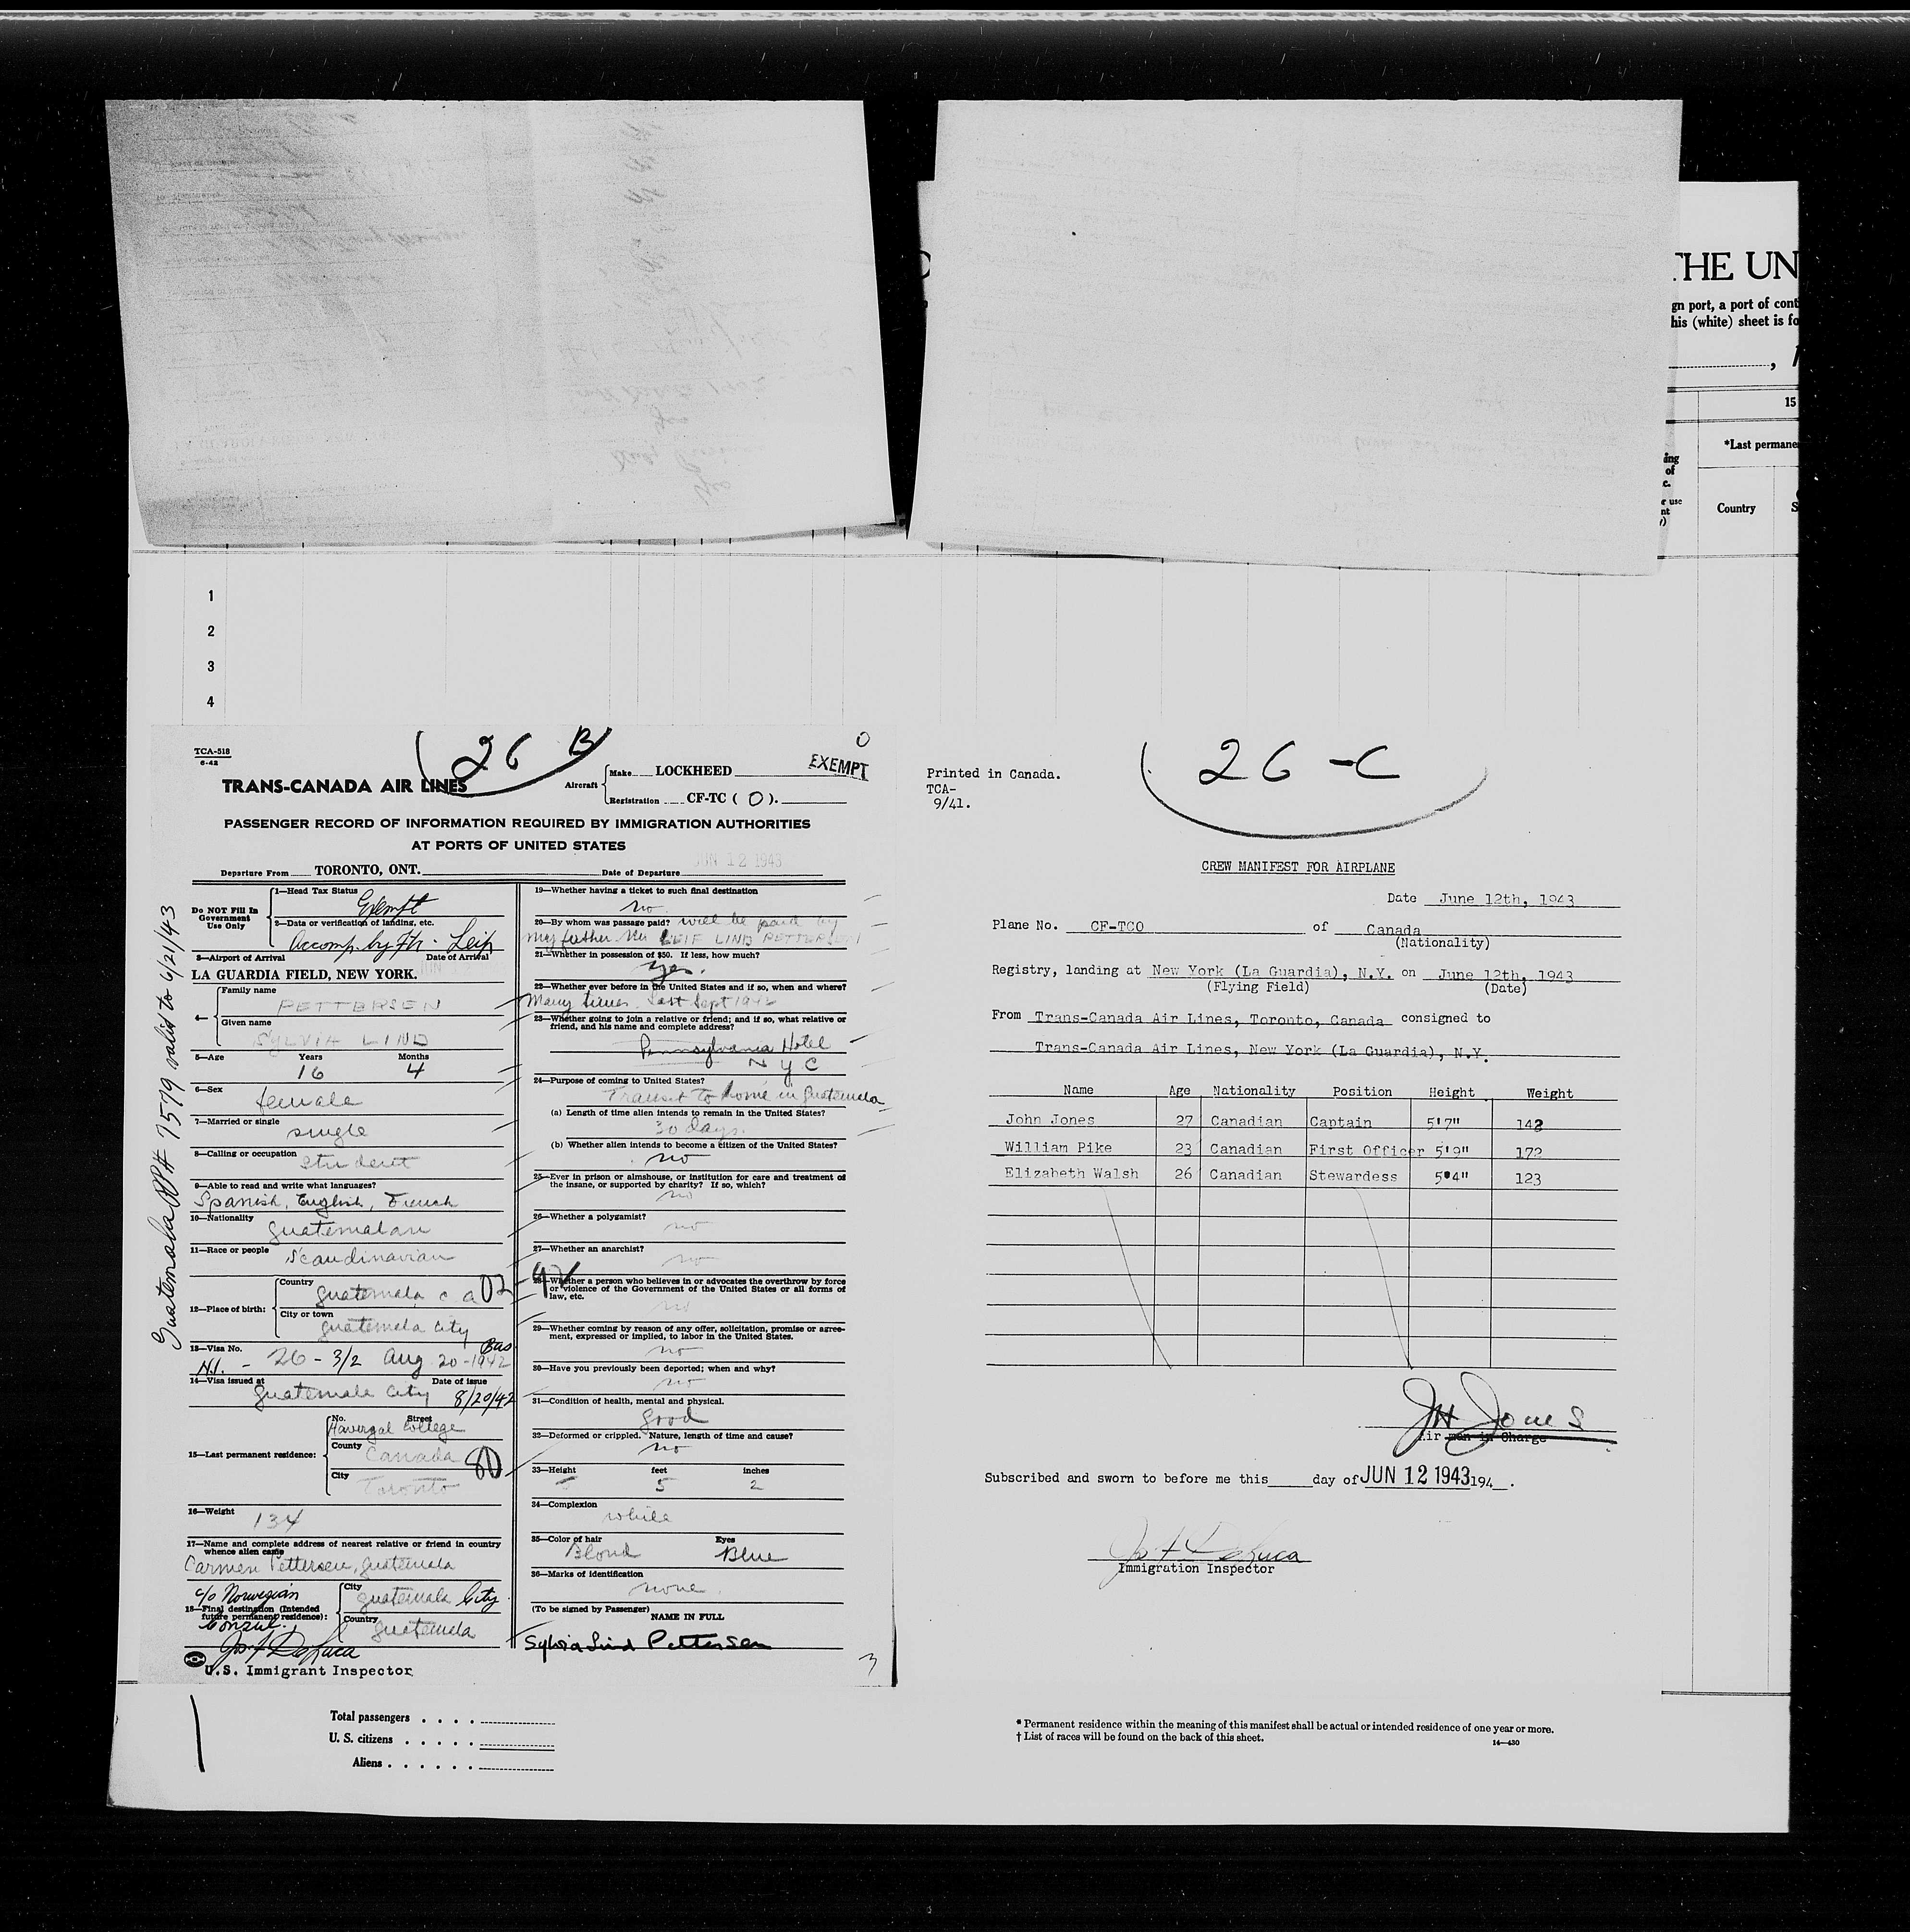 THE UN
gn port, a port of cont
his (white) sheet is fo
15
*Last permane
ing
of
c.
r use
nt
Country
S
1
2
3
4
26 B
0
TCA-518
6-42
TRANS-CANADA AIR LINES
Aircraft
Make LOCKHEED
Registration CF-TC ( O ).
EXEMPT
PASSENGER RECORD OF INFORMATION REQUIRED BY IMMIGRATION AUTHORITIES
AT PORTS OF UNITED STATES
JUN 12 1943
Departure From TORONTO, ONT. Date of Departure
Do NOT Fill In Government Use Only
1—Head Tax Status
Exempt
2—Data or verification of landing, etc.
Accomp. by Fh. Leif
3—Airport of Arrival Date of Arrival
LA GUARDIA FIELD, NEW YORK. JUN 12
4—
Family name
PETTERSEN
Given name
SYLVIA LIND
5—Age Years Months
16 4
6—Sex
female
7—Married or single
single
8—Calling or occupation
student
9—Able to read and write what languages?
Spanish, English, French
10—Nationality
Guatemalan
11—Race or people
Scandinavian
12—Place of birth:
Country
Guatemala c a 02-92
City or town
Guatemala City
13—Visa No.
N.I. - 26 - 3/2 Aug 20-1942
14—Visa issued at Date of issue
Guatemala City 8/20/42
15—Last permanent residence:
No. Street
Havergal College
County
Canada 80
City
Toronto
16—Weight
134
17—Name and complete address of nearest relative or friend in country
whence alien came
Carmen Pettersen, Guatemala
c/o Norwegian
Consul.
18—Final destination (Intended
future permanent residence):
City
Guatemala City
Country
Guatemala
Jos. F. DeLuca
U.S. Immigrant Inspector
Guatemala PP# 7579 valid to 6/21/43
19—Whether having a ticket to such final destination
no
20—By whom was passage paid? will be paid by
my father Mr LEIF LIND PETTERSEN
21—Whether in possession of $50. If less, how much?
yes.
22—Whether ever before in the United States and if so, when and where?
Many times. Last Sept 1942
23—Whether going to join a relative or friend; and if so, what relative or
friend, and his name and complete address?
Pennsylvania Hotel
N Y C
24—Purpose of coming to United States?
Transit to home in Guatemala
(a) Length of time alien intends to remain in the United States?
30 days.
(b) Whether alien intends to become a citizen of the United States?
no
25—Ever in prison or almshouse, or institution for care and treatment of
the insane, or supported by charity? If so, which?
no
26—Whether a polygamist?
no
27—Whether an anarchist?
no
28—Whether a person who believes in or advocates the overthrow by force
or violence of the Government of the United States or all forms of
law, etc.
no
29—Whether coming by reason of any offer, solicitation, promise or agree-
ment, expressed or implied, to labor in the United States.
no
30—Have you previously been deported; when and why?
no
31—Condition of health, mental and physical.
good
32—Deformed or crippled. Nature, length of time and cause?
no
33—Height feet inches
5 2
34—Complexion
white
35—Color of hair Eyes
Blond Blue
36—Marks of identification
none
(To be signed by Passenger) NAME IN FULL
Sylvia Lind Pettersen
3
Total passengers . . . .
U. S. citizens . . . . .
Aliens . . . . . .
26-C
Printed in Canada.
TCA-
9/41.
CREW MANIFEST FOR AIRPLANE
Date June 12th, 1943
Plane No. CF-TCO of Canada
(Nationality)
Registry, landing at New York (La Guardia), N.Y. on June 12th, 1943
(Flying Field) (Date)
From Trans-Canada Air Lines, Toronto, Canada consigned to
Trans-Canada Air Lines, New York (La Guardia), N.Y.
Name Age Nationality Position Height Weight
John Jones 27 Canadian Captain 5'7" 142
William Pike 23 Canadian First Officer 5'9" 172
Elizabeth Walsh 26 Canadian Stewardess 5'4" 123
JH Jones
Air man in Charge
Subscribed and sworn to before me this ____ day of JUN 12 1943 194_.
Jos. F. DeLuca
Immigration Inspector
* Permanent residence within the meaning of this manifest shall be actual or intended residence of one year or more.
† List of races will be found on the back of this sheet.
14—430